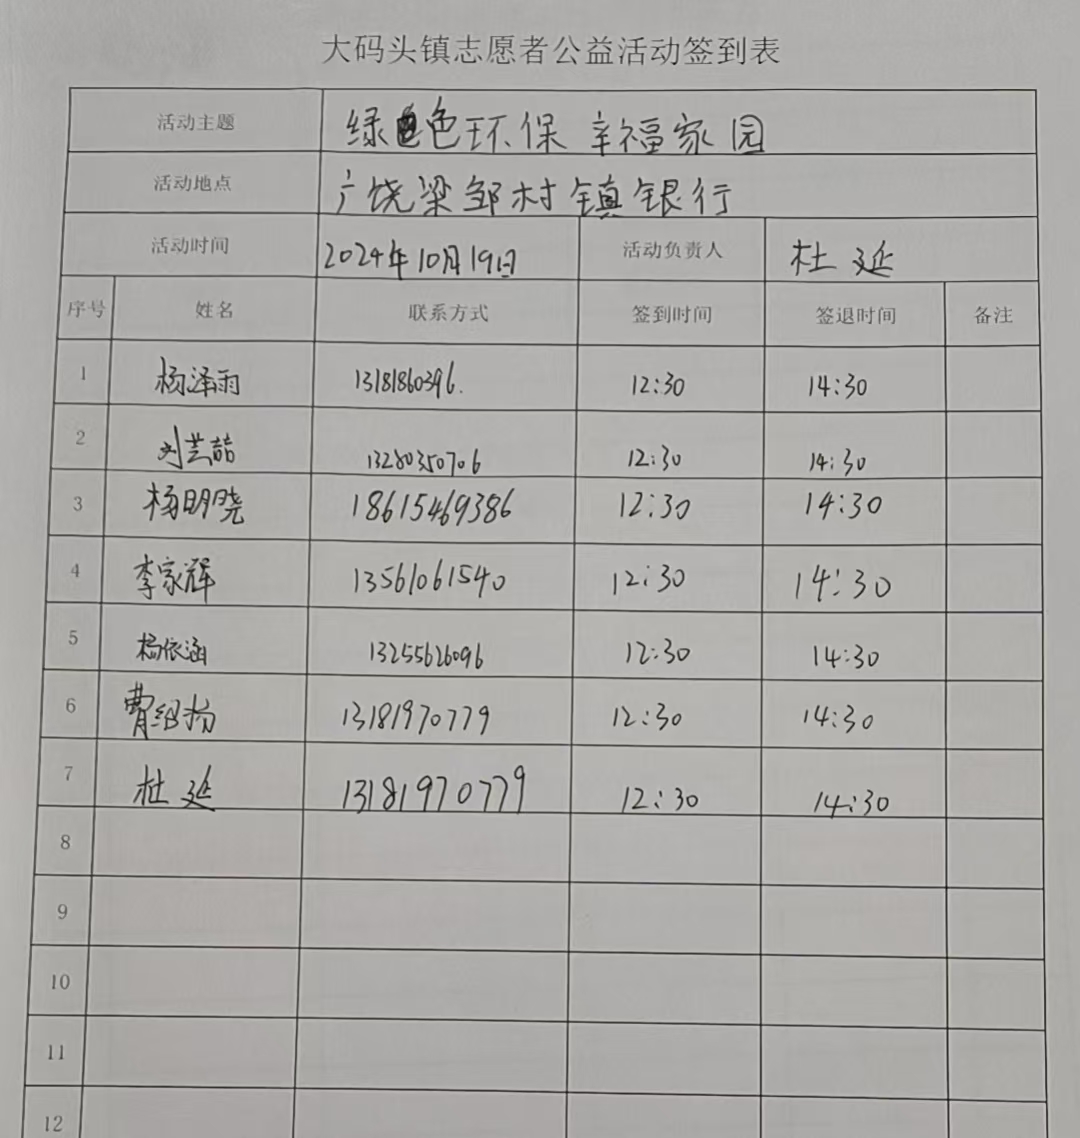 大码头镇志愿者公益活动签到表
活动主题 绿色环保 幸福家园
活动地点 广饶梁邹村镇银行
活动时间 2024年10月19日 活动负责人 杜延
序号 姓名 联系方式 签到时间 签退时间 备注
1 杨泽雨 13181860396. 12:30 14:30
2 刘芸喆 13280350706 12:30 14:30
3 杨明晓 18615469386 12:30 14:30
4 李家辉 13561061540 12:30 14:30
5 杨依涵 13255626096 12:30 14:30
6 曹绍扬 13181970779 12:30 14:30
7 杜延 13181970779 12:30 14:30
8
9
10
11
12